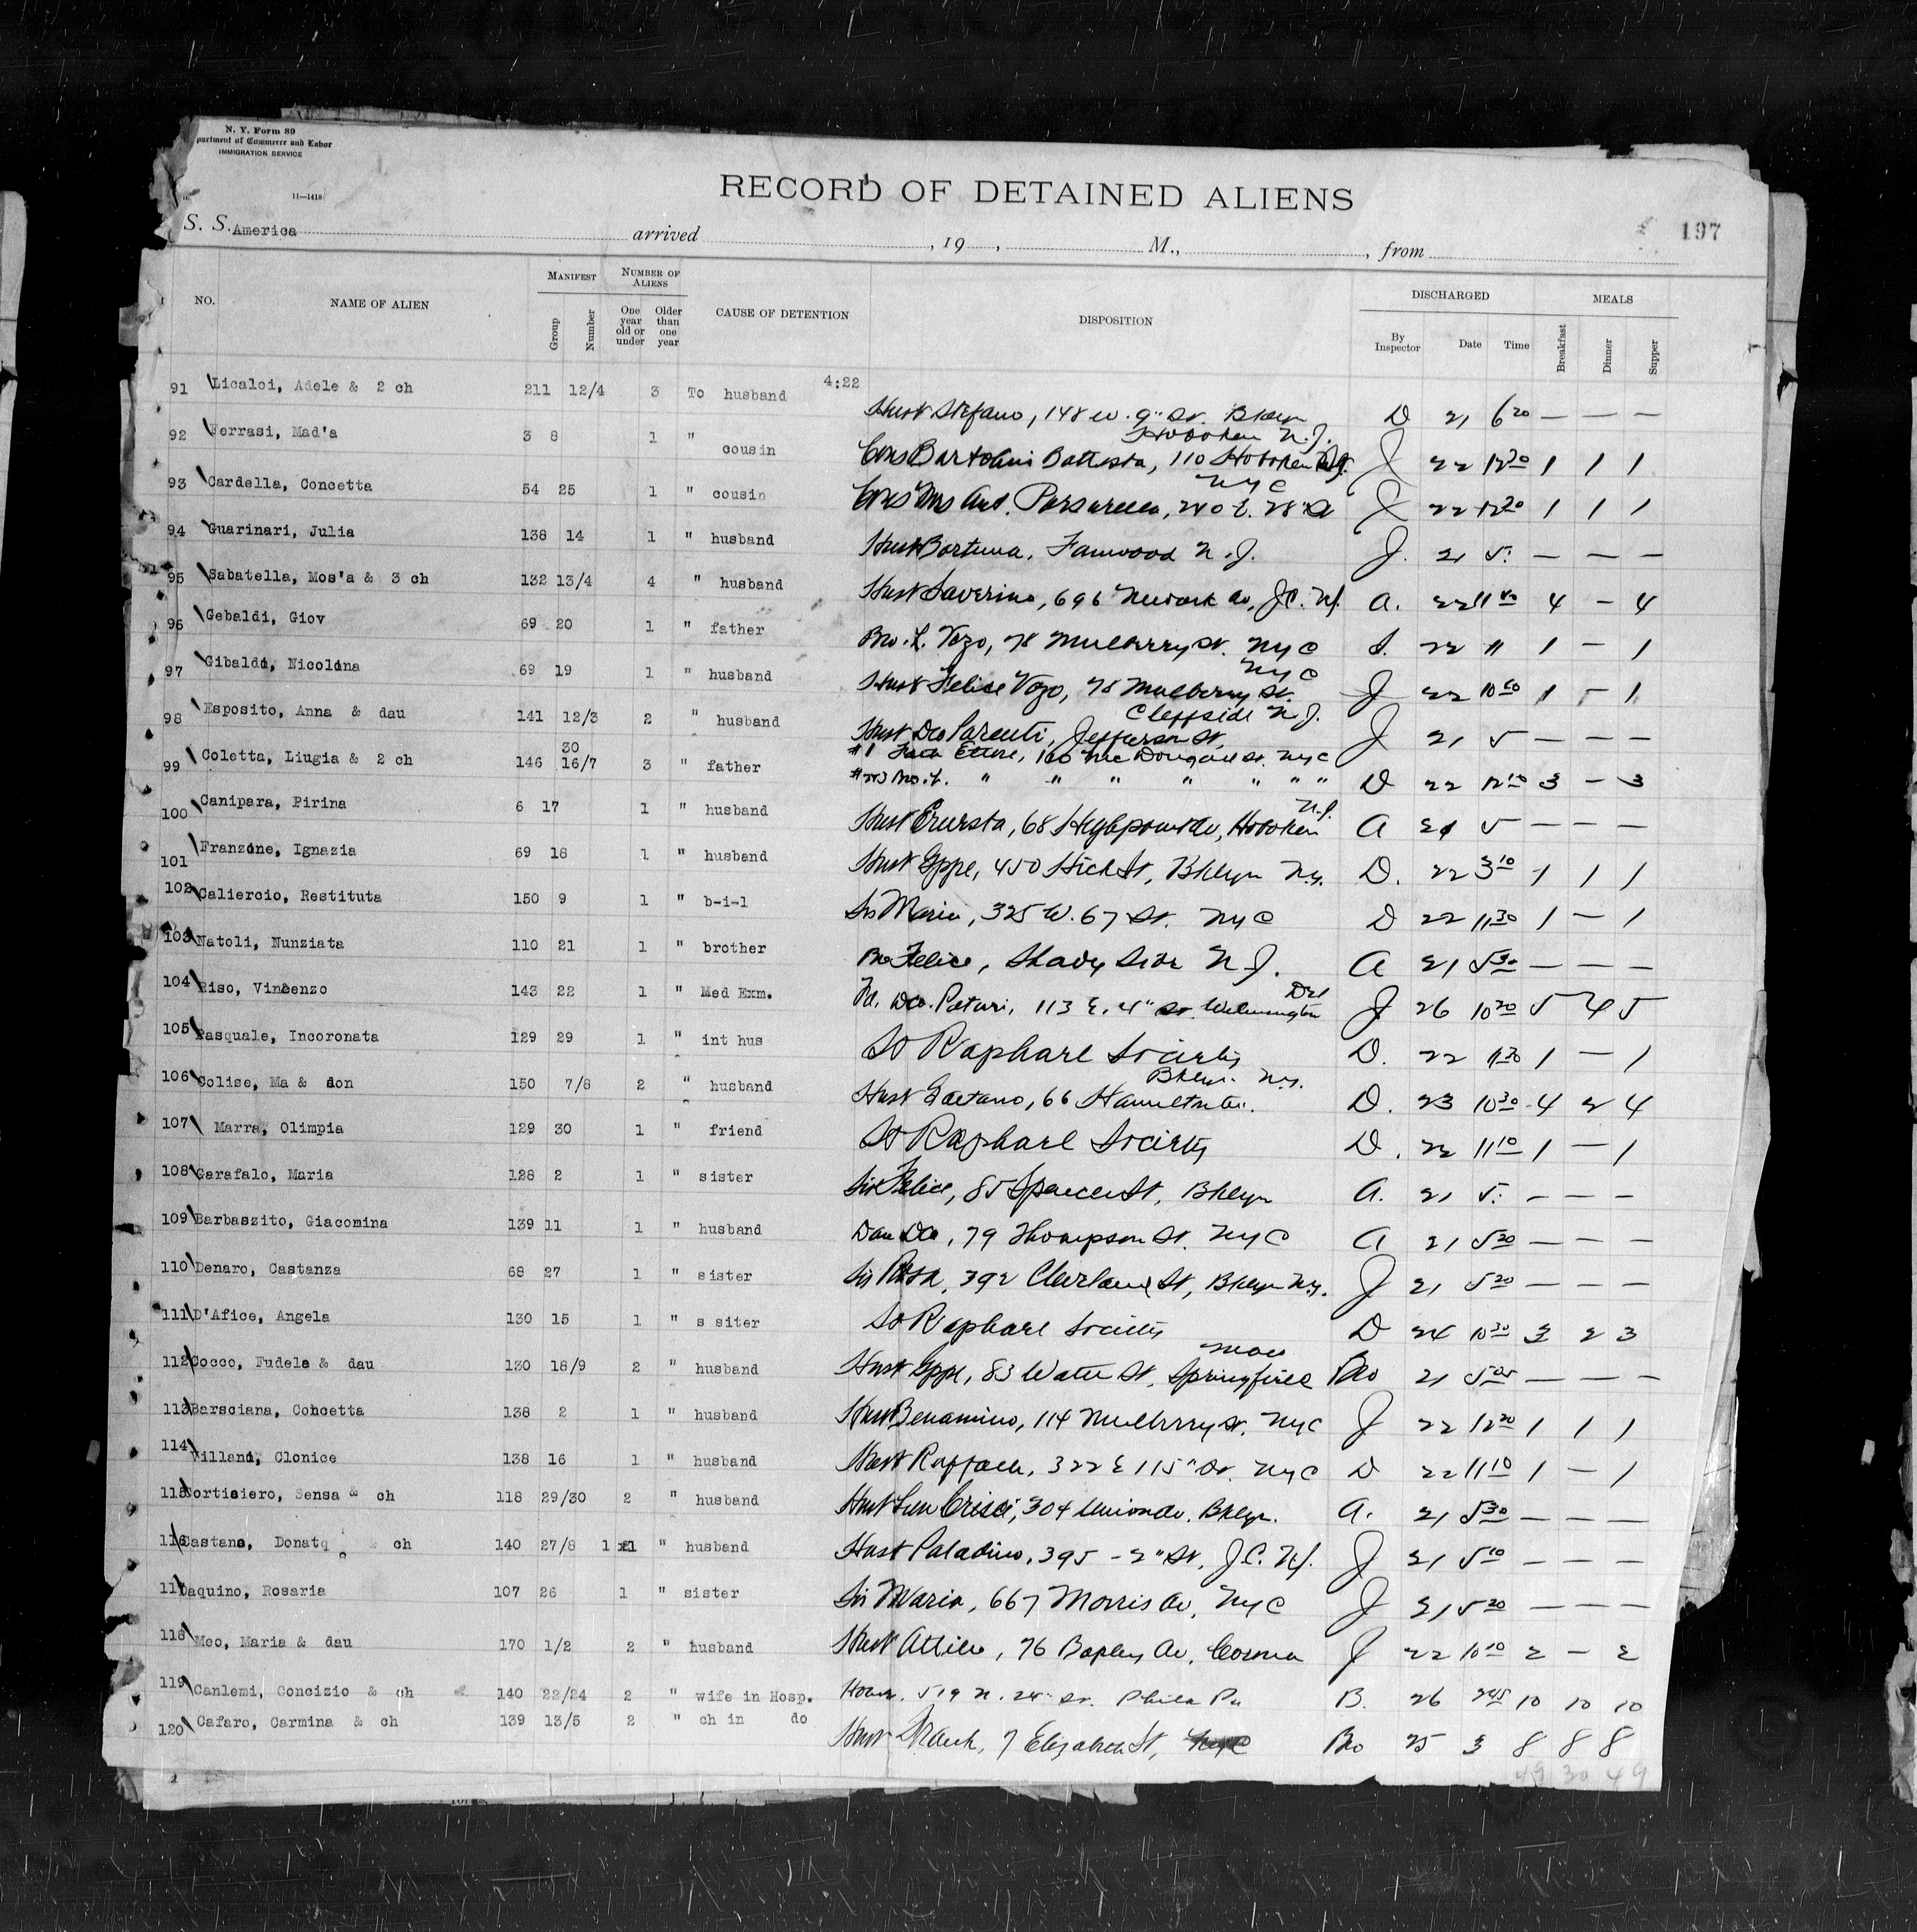 N. Y. Form 89
partment of Commerce and Labor
IMMIGRATION SERVICE
11—1418
RECORD OF DETAINED ALIENS
197
S. S. America arrived , 19 , M., , from
NO. NAME OF ALIEN MANIFEST Group Number NUMBER OF ALIENS One year old or under Older than one year CAUSE OF DETENTION DISPOSITION DISCHARGED By Inspector Date Time MEALS Breakfast Dinner Supper
4:22
91 Licalci, Adele & 2 ch 211 12/4 3 To husband Husb Stefano, 148 W. 9" St. Bklyn D 21 6 20 — — —
Hoboken N.J.
92 Ferrasi, Mad'a 3 8 1 " cousin Cous Bartolini Battista, 110 Hoboken J 22 12 20 1 1 1
NYC
93 Cardella, Concetta 54 25 1 " cousin Cous Mrs Ant. 240 E. 28" St J 22 12 20 1 1 1
94 Guarinari, Julia 138 14 1 " husband Husb Fanwood N.J. J. 21 5: — — —
95 Sabatella, Mos'a & 3 ch 132 13/4 4 " husband Husb Saverino, 696 Newark Av, J.C. N.J. A. 22 11 40 4 — 4
96 Gebaldi, Giov 69 20 1 " father Bro. L. Vozo, 78 Mulberry St. NYC S. 22 11 1 — 1
NYC
97 Gibaldi, Nicolina 69 19 1 " husband Husb Felice Vozo, 78 Mulberry St. J 22 10 1 — 1
Cliffside N.J.
98 Esposito, Anna & dau 141 12/3 2 " husband Husb Jefferson St. J 21 5 — — —
30 #1 Ettore, Mc Dougall St. NYC
99 Coletta, Liugia & 2 ch 146 16/7 3 " father " " " " " " " D 22 12 10 3 — 3
N.J.
100 Canipara, Pirina 6 17 1 " husband Husb 68 Hoboken A 21 5 — — —
101 Franzone, Ignazia 69 18 1 " husband Husb Gppe, 450 Hick St, Bklyn N.Y. D. 22 3 10 1 1 1
102 Caliercio, Restituta 150 9 1 " b-i-l Sis Maria, 325 W. 67 St. NYC D 22 11 30 1 — 1
103 Natoli, Nunziata 110 21 1 " brother Bro Felice, Shady Side N.J. A 21 5 30 — — —
Del
104 Riso, Vincenzo 143 22 1 " Med Exm. 113 E. 4" St. Wilmington J 26 10 20 5 4 5
105 Pasquale, Incoronata 129 29 1 " int hus St Raphael Society D. 22 11 30 1 — 1
Bklyn. N.Y.
106 Colise, Ma & don 150 7/8 2 " husband Husb Gaetano, 66 Hamilton Av. D. 23 10 30 4 2 4
107 Marra, Olimpia 129 30 1 " friend St Raphael Society D. 22 11 10 1 — 1
108 Garafalo, Maria 128 2 1 " sister Sis Felice, 85 Spencer St, Bklyn A. 21 5: — — —
109 Barbaszito, Giacomina 139 11 1 " husband Dau Do, 79 Thompson St. NYC A 21 5 20 — — —
110 Denaro, Castanza 68 27 1 " sister Sis Rosa, 392 Cleveland St, Bklyn N.Y. J 21 5 20 — — —
111 D'Afice, Angela 130 15 1 " s siter St Raphael Society D 24 10 30 3 2 3
Mass
112 Cocco, Fudele & dau 130 18/9 2 " husband Husb Gppe, 83 Water St, Springfield Bro 21 5 05 — — —
113 Barsciana, Concetta 138 2 1 " husband Husb Benamino, 114 Mulberry St. NYC J 22 12 20 1 1 1
114 Villani, Clonice 138 16 1 " husband Husb Raffaele, 322 E 115" St. NYC D 22 11 10 1 — 1
115 Cortisiero, Sensa & ch 118 29/30 2 " husband Husb Crisci, 304 Union Av. Bklyn. A. 21 5 30 — — —
116 Castano, Donato & ch 140 27/8 1 1 " husband Husb Paladino, 395 - 2" St, J.C. N.J. J 21 5 10 — — —
117 Daquino, Rosaria 107 26 1 " sister Sis Maria, 667 Morris Av, NYC J 21 5 20 — — —
118 Meo, Maria & dau 170 1/2 2 " husband Husb Attilio, 76 Av, Corona J 22 10 10 2 — 2
119 Canlemi, Concizio & ch 140 22/24 2 " wife in Hosp. 519 N. 24" St. Phila Pa B. 26 2 45 10 10 10
120 Cafaro, Carmina & ch 139 13/5 2 " ch in do Husb Frank, 7 Elizabeth St, NYC Bro 25 3 8 8 8
49 30 49